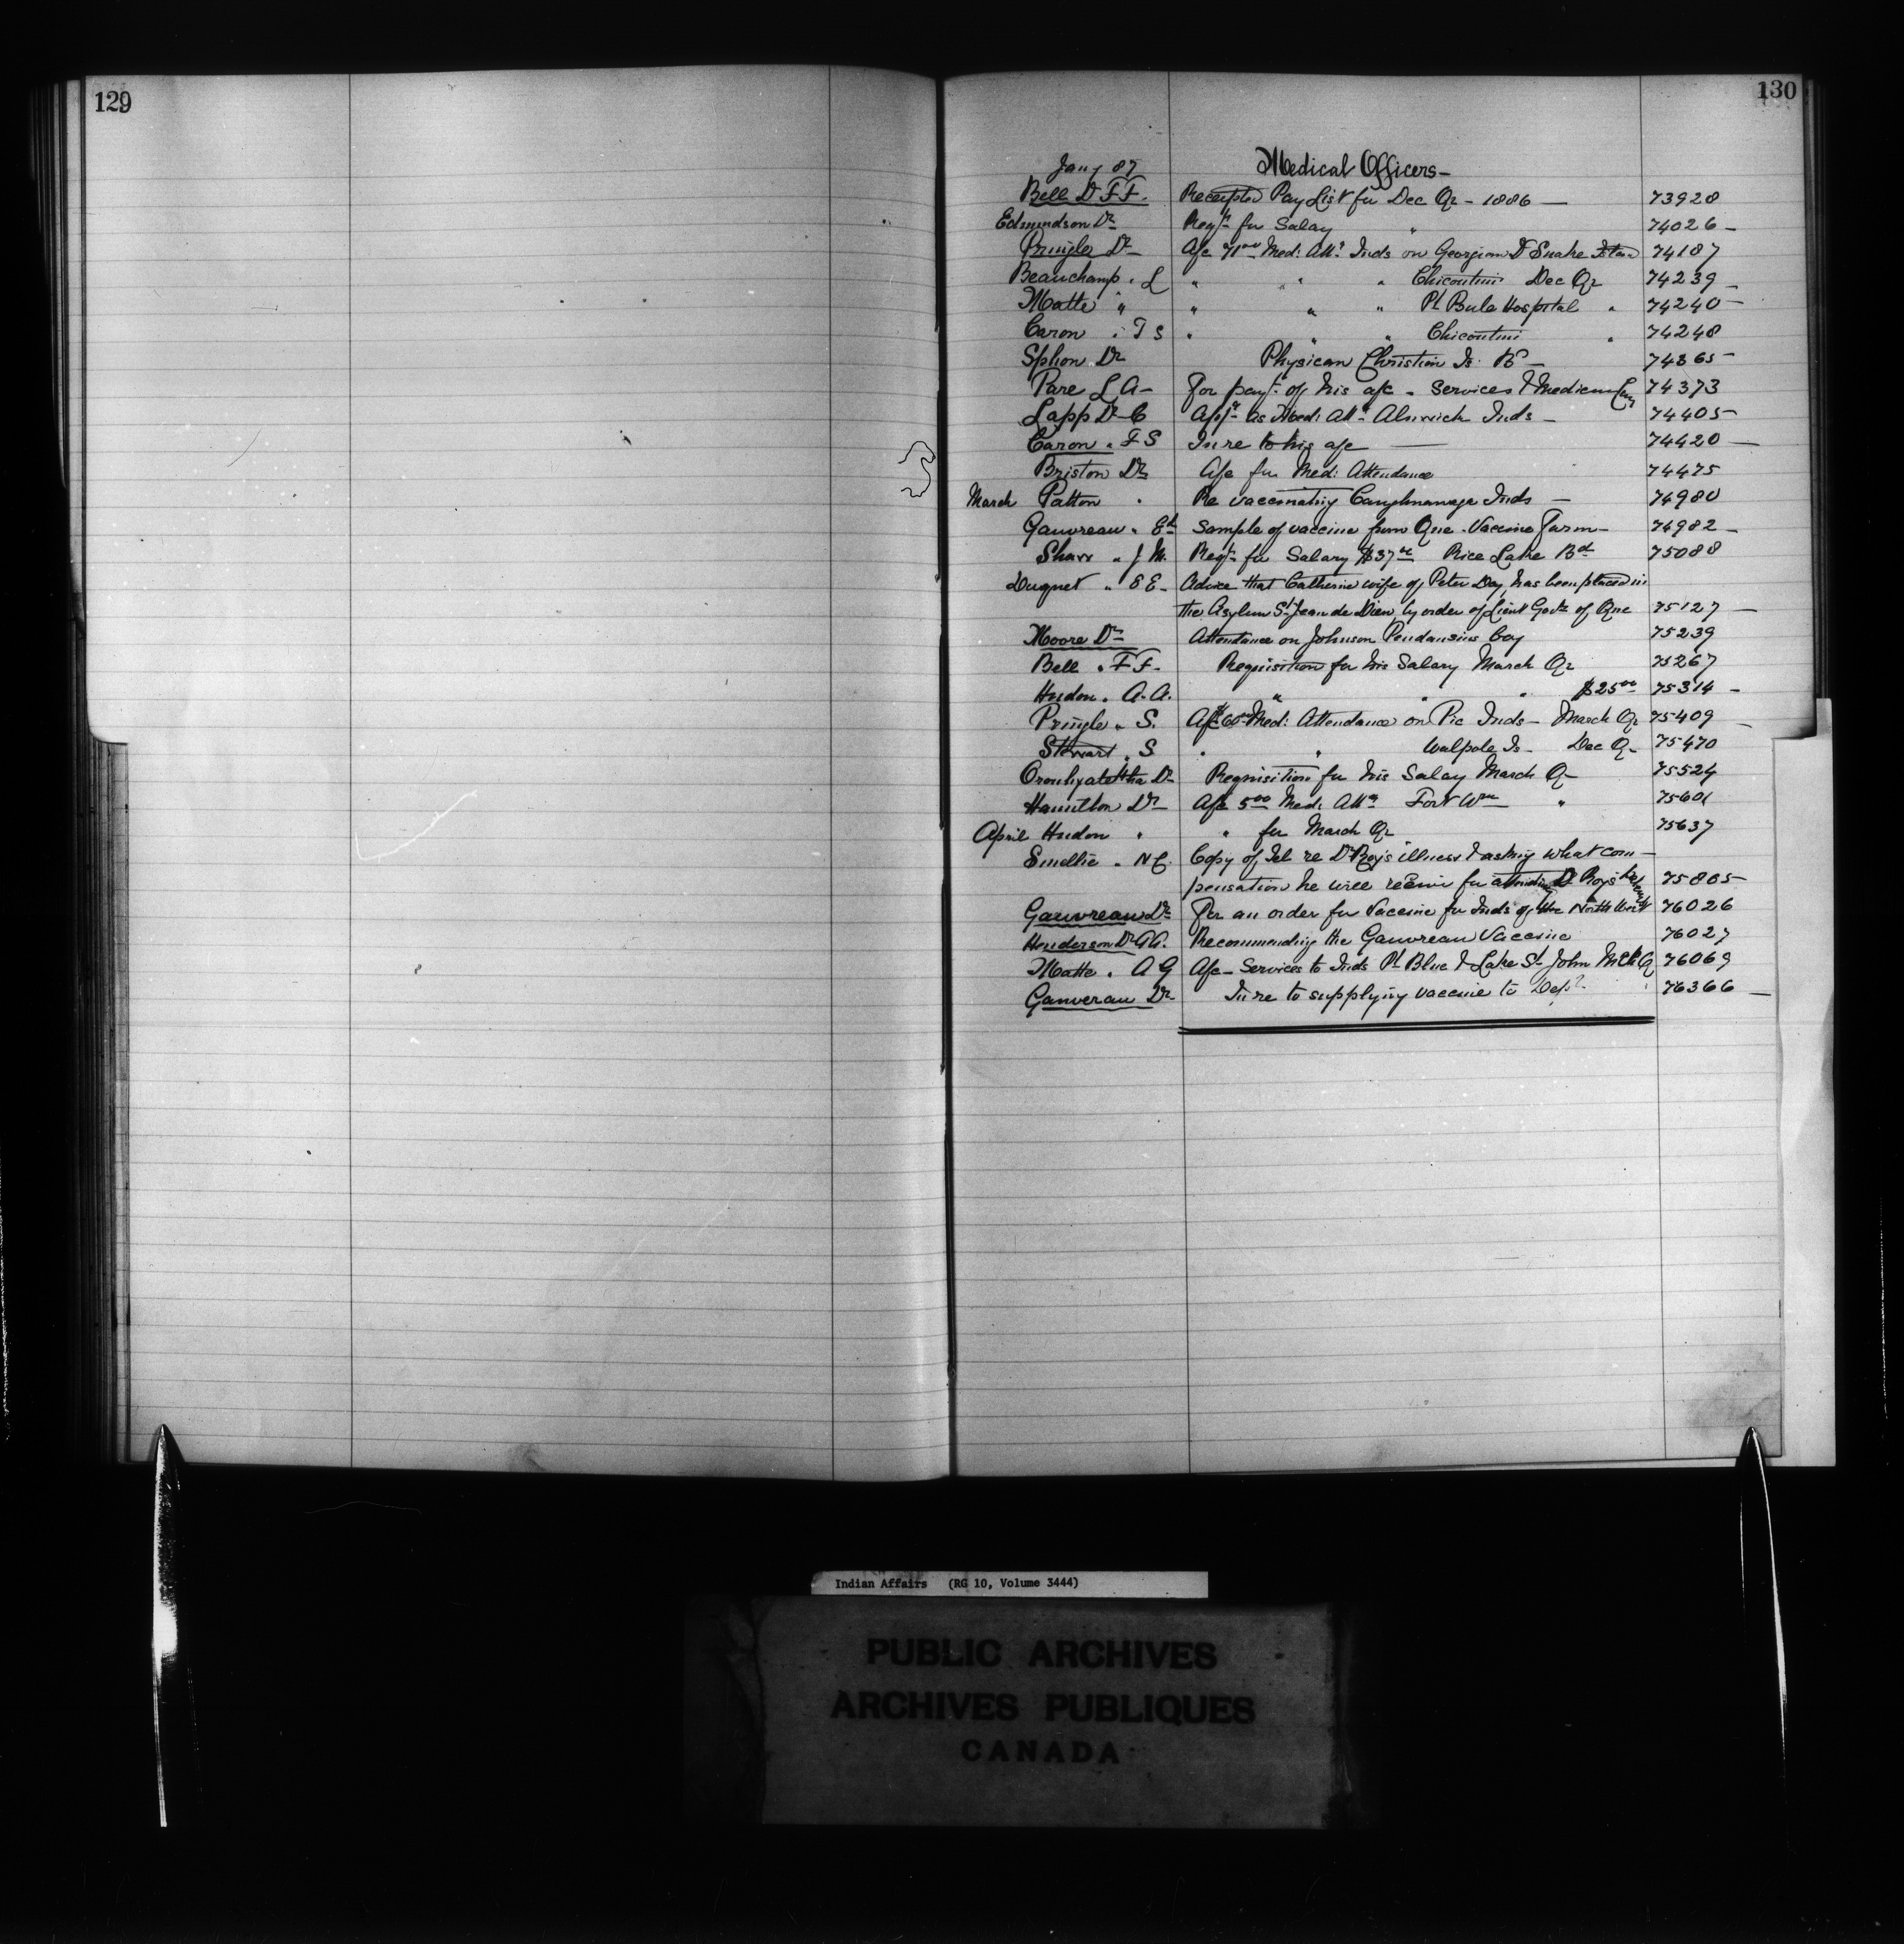 129
130
Jany 87 Medical Officers –
Bell Dr F F. Receipted Pay List for Dec Qr – 1886 — 73928
Edmundson Dr Reqn for Salary " 74026 –
Pringle Dr A/c Med: Attn Inds on Georgina & Snake 74187
Beauchamp " L " " " Chicoutimi Dec Qr 74239 –
Matte " " " " Pt Bule Hospital " 74240 –
Caron " T S " " " Chicoutimi " 74248
Sphon Dr Physican Christian Is. 74365 –
Pare L A – For payt of his a/c – Services & Medicine 74373
Lapp Dr C Appn as Med: Attn Alnwick Inds – 74405 –
Caron " F S In re to his a/c — 74420 —
Briston Dr A/c for Med: Attendance 74475
March Patton " Re vaccinating Caughnawaga Inds – 74980
Gauvreau " Ed Sample of vaccine from Que Vaccine Farm – 74982 –
Shaw " J M. Reqn for Salary $37 Rice Lake Bd 75088
Duquet " E E – Advice that Catherine wife of Peter Day, has been placed in
the Asylum St Jean de Dieu by order of Lieut Govr of Que 75127 —
Moore Dr Attendance on Johnson boy 75239
Bell " F F. Requisition for his Salary March Qr 75267
Hudon " A. A. " " " $25 00 75314 –
Pringle " S. A/c $60 00 Med: Attendance on Pic Inds – March Qr 75409 –
Stewart " S " " Walpole Is – Dec Qr 75470
Oronhyatekha Dr Requisition for his Salay March Qr 75524
Hamilton Dr A/c 5 00 Med: Attn Fort Wm " 75601
April Hudon " " for March Qr 75637
Smellie " Copy of Tel re Dr Roy's illness & asking what com–
pensation he will receive for attending Dr Roys 75805
Gauvreau Dr For an order for Vaccine for Inds of the North West 76026
Henderson Dr A A. Recommending the Gauvreau Vaccine 76027
Matte " A G A/c – Services to Inds Pt Blue & Lake St John 76069
Ganverau Dr In re to supplying vaccine to Dept 76366 —
Indian Affairs (RG 10, Volume 3444)
PUBLIC ARCHIVES
ARCHIVES PUBLIQUES
CANADA